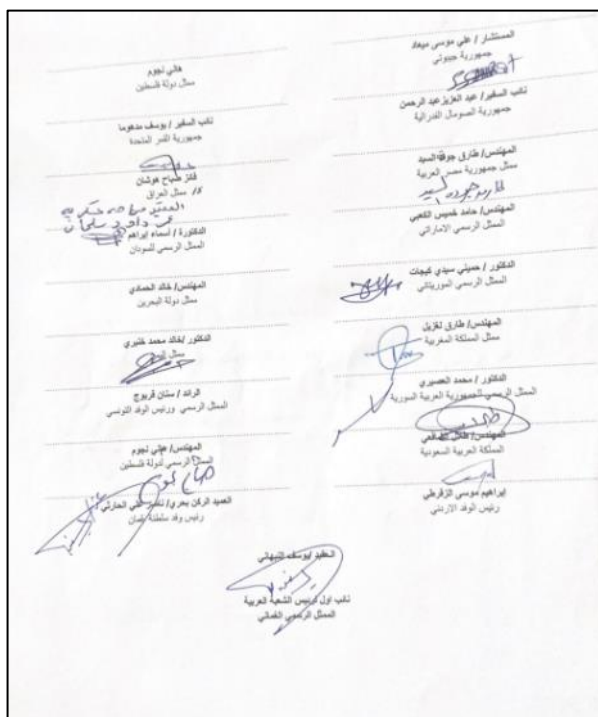 المستشار / علي موسى ميعاد
جمهورية جيبوتي
نائب السفير/ عبد العزيز عبد الرحمن
جمهورية الصومال الفدرالية
المهندس/ طارق جوقة السيد
ممثل جمهورية مصر العربية
المهندس/ حامد خميس الكعبي
الممثل الرسمي الاماراتي
الدكتور / حميني سيدي كيجات
الممثل الرسمي الموريتاني
المهندس/ طارق لغزيل
ممثل المملكة المغربية
الدكتور / محمد العصيري
الممثل الرسمي للجمهورية العربية السورية
المهندس/ طلال
المملكة العربية السعودية
إبراهيم موسى الزقرطي
رئيس الوفد الاردني
هاني نجوم
ممثل دولة فلسطين
نائب السفير / يوسف مدهوما
جمهورية القمر المتحدة
فائز صباح هوشان
ممثل العراق
الدكتورة / أسماء إبراهيم
الممثل الرسمي للسودان
المهندس/ خالد الحمادي
ممثل دولة البحرين
الدكتور /خالد محمد خنبري
ممثل
الرائد / سنان قريوج
الممثل الرسمي ورئيس الوفد التونسي
المهندس/ هاني نجوم
الممثل الرسمي لدولة فلسطين
العميد الركن بحري/ ناصر علي الحارثي
رئيس وفد سلطنة عمان
العقيد /يوسف النبهاني
نائب اول لرئيس الشعبة العربية
الممثل الرسمي العماني